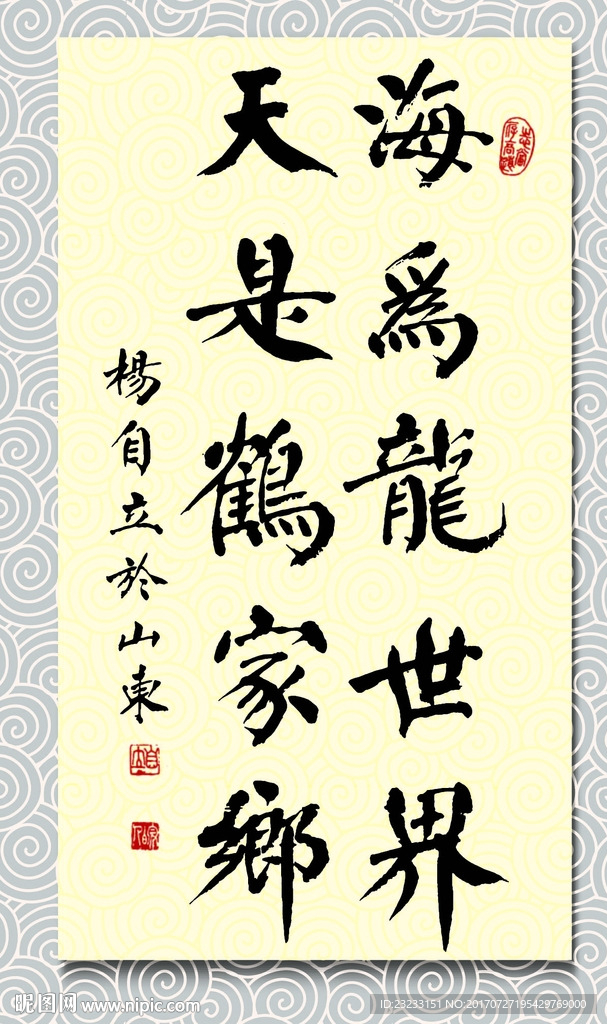 海為龍世界
天是鶴家鄉
楊自立於山東
志當存高遠
自立
昵图网 www.nipic.com
ID:23233151 NO:20170727195429769000